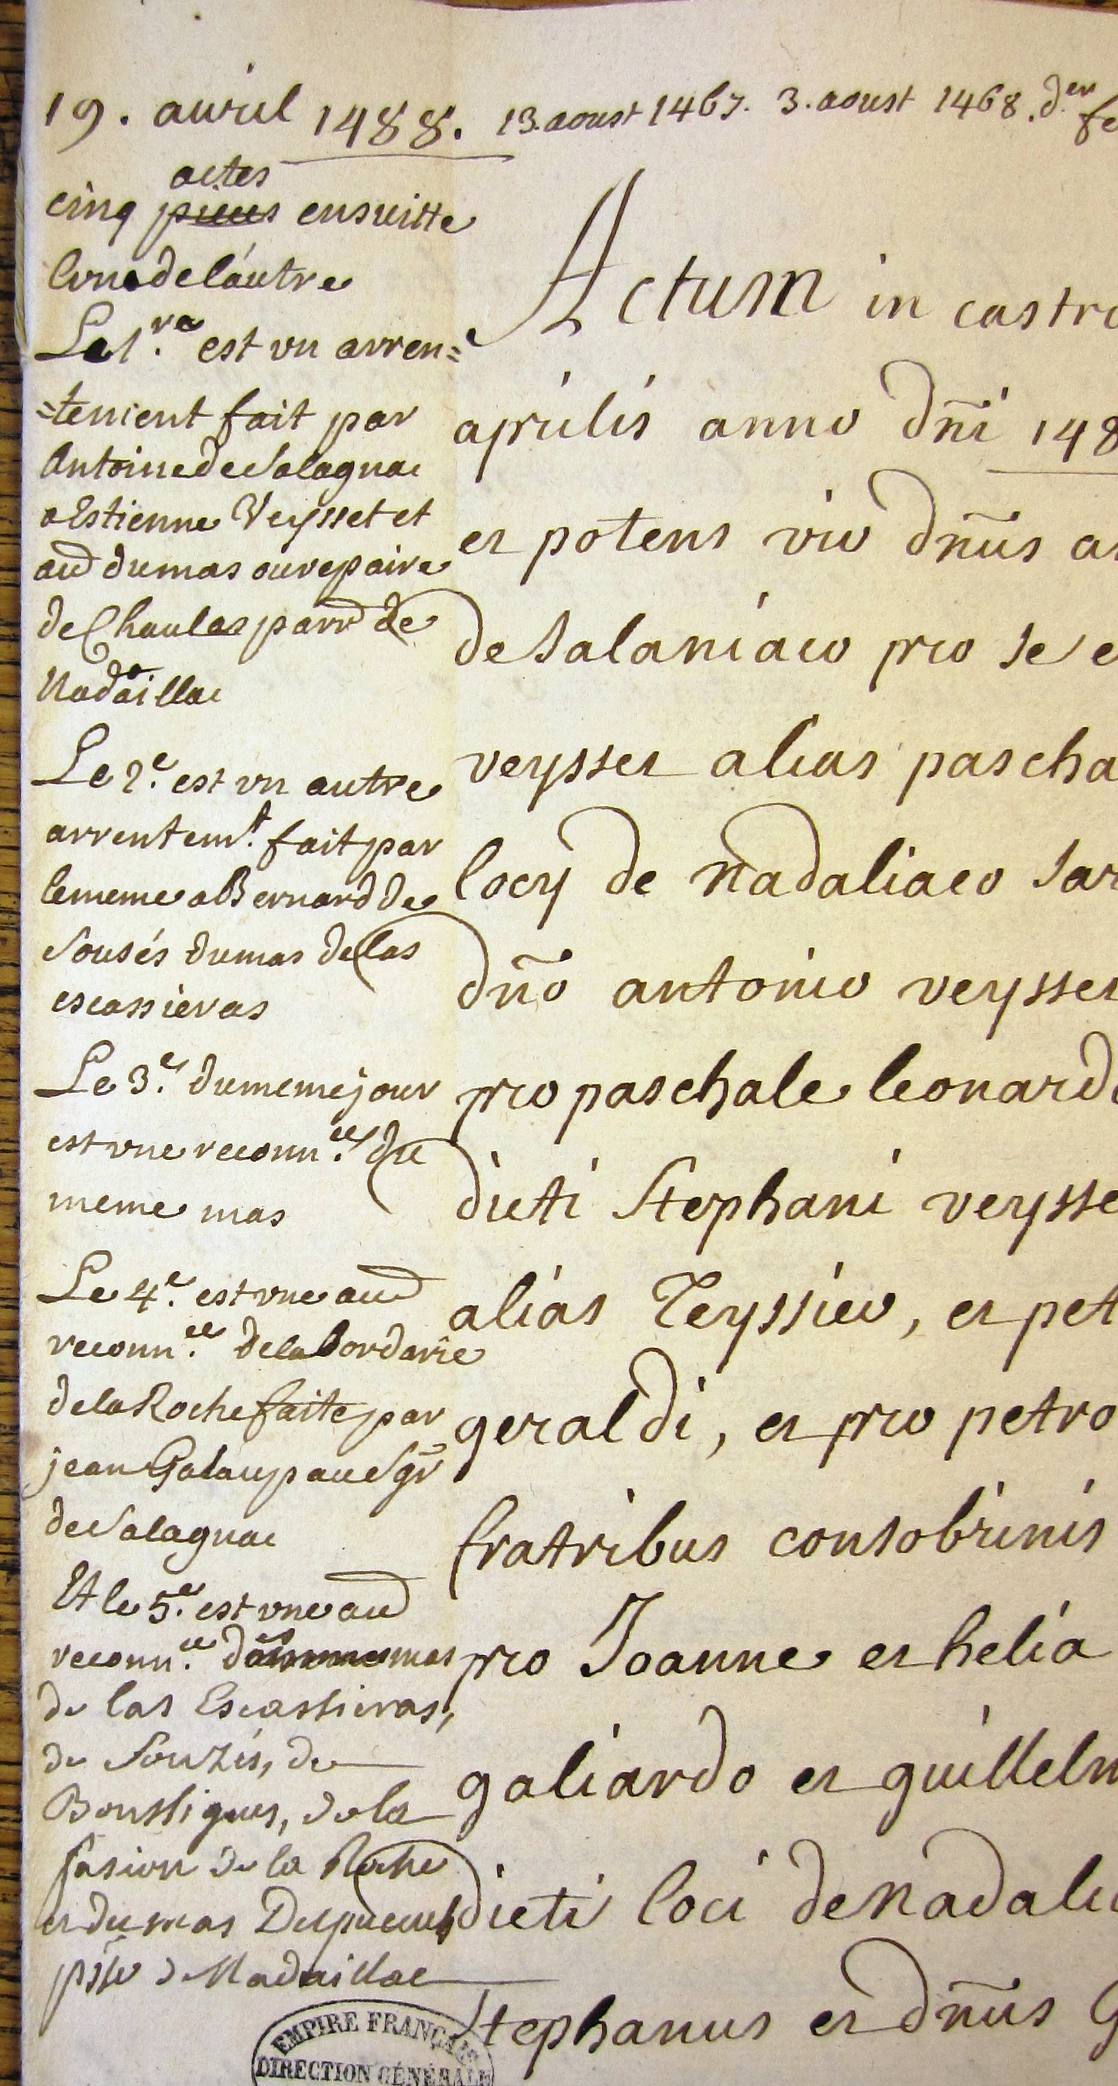 19. avril 1488. 13. aoust 1467. 3. aoust 1468. d.er
actes
cinq pieces ensuitte
l'une de l'autre
Le 1.re est un arren=
=tement fait par
Antoine de Salagnac
a Estienne Veysset et
aud dumas ou repaire
de Chaulas parr de
Nadaillac
Le 2.e est un autre
arrentem.t fait par
le meme a Bernard de
Sousés dumas de las
escassieras
Le 3.e du meme jour
est une reconn.ce du
meme mas
Le 4.e est une aud
reconn.ce de la Bordarie
de la Roche faite par
jean Galaup au Sgr
de Salagnac
Et le 5.e est une aud
reconn.ce mas
de las Escassieras,
de Souzés, de
Boussigues, de la
fasion de la Roche
et du mas
psse de Nadaillac
Actum in castro
aprilis anno dñi 148
et potens vir dñus
de Salaniaco pro se e
veysset alias pascha
locy de Nadaliaco Sar
dño antonio veysset
pro paschale leonard
dicti Stephani veysse
alias Teyssier, et pet
geraldi, et pro petro
fratribus consobrinis
pro Joanne et helia
galiardo et guillelm
dicti loci de Nadali
Stephanus et dñus G
EMPIRE FRANÇAIS
DIRECTION GÉNÉRALE